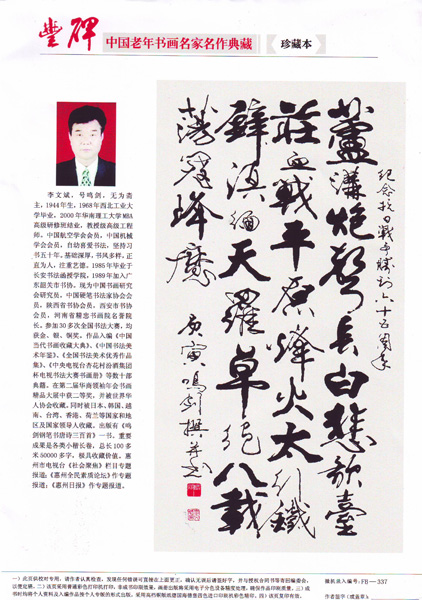 丰碑
中国老年书画名家名作典藏
珍藏本
李文斌，号鸣剑，无为斋
主，1944年生，1968年西北工业大
学毕业，2000年华南理工大学MBA
高级研修班结业，教授级高级工程
师。中国航空学会会员，中国机械
学会会员，自幼喜爱书法，坚持习
书五十年，基础深厚，书风多样，正
直为人，注重艺德。1985年毕业于
长安书法函授学院，1989年加入广
东韶关市书协，现为中国书画研究
会研究员，中国硬笔书法家协会会
员，陕西省书协会员，西安市书协
会员，河南省精忠书画院名誉院
长。参加30多次全国书法大赛，均
获金、银、铜奖，作品入编《中国
当代书画收藏大典》、《中国书法美
术年鉴》、《全国书法美术优秀作品
集》、《中央电视台杏花村汾酒集团
杯电视书法大赛书画册》等数十部
典籍。在第二届华商领袖年会书画
精品大展中获二等奖，并被世界华
人协会收藏，同时被日本、韩国、越
南、台湾、香港、荷兰等国家和地
区及国家领导人收藏。出版有《鸣
剑钢笔书唐诗三百首》一书，重要
成果是各类小楷长卷，总长100多
米50000多字，极具收藏价值。惠
州市电视台《社会聚焦》栏目专题
报道；《惠州全民素质论坛》作专题
报道；《惠州日报》作专题报道。
纪念抗日战争胜利六十五周年
蘆溝炮聲長白悲歌臺
莊血戰平原烽火太行鐵
壁滇緬天羅草繩八載
蕩寇降魔
庚寅鳴劍撰并书
微机录入编号：FB—337
作者签字（或盖章）：